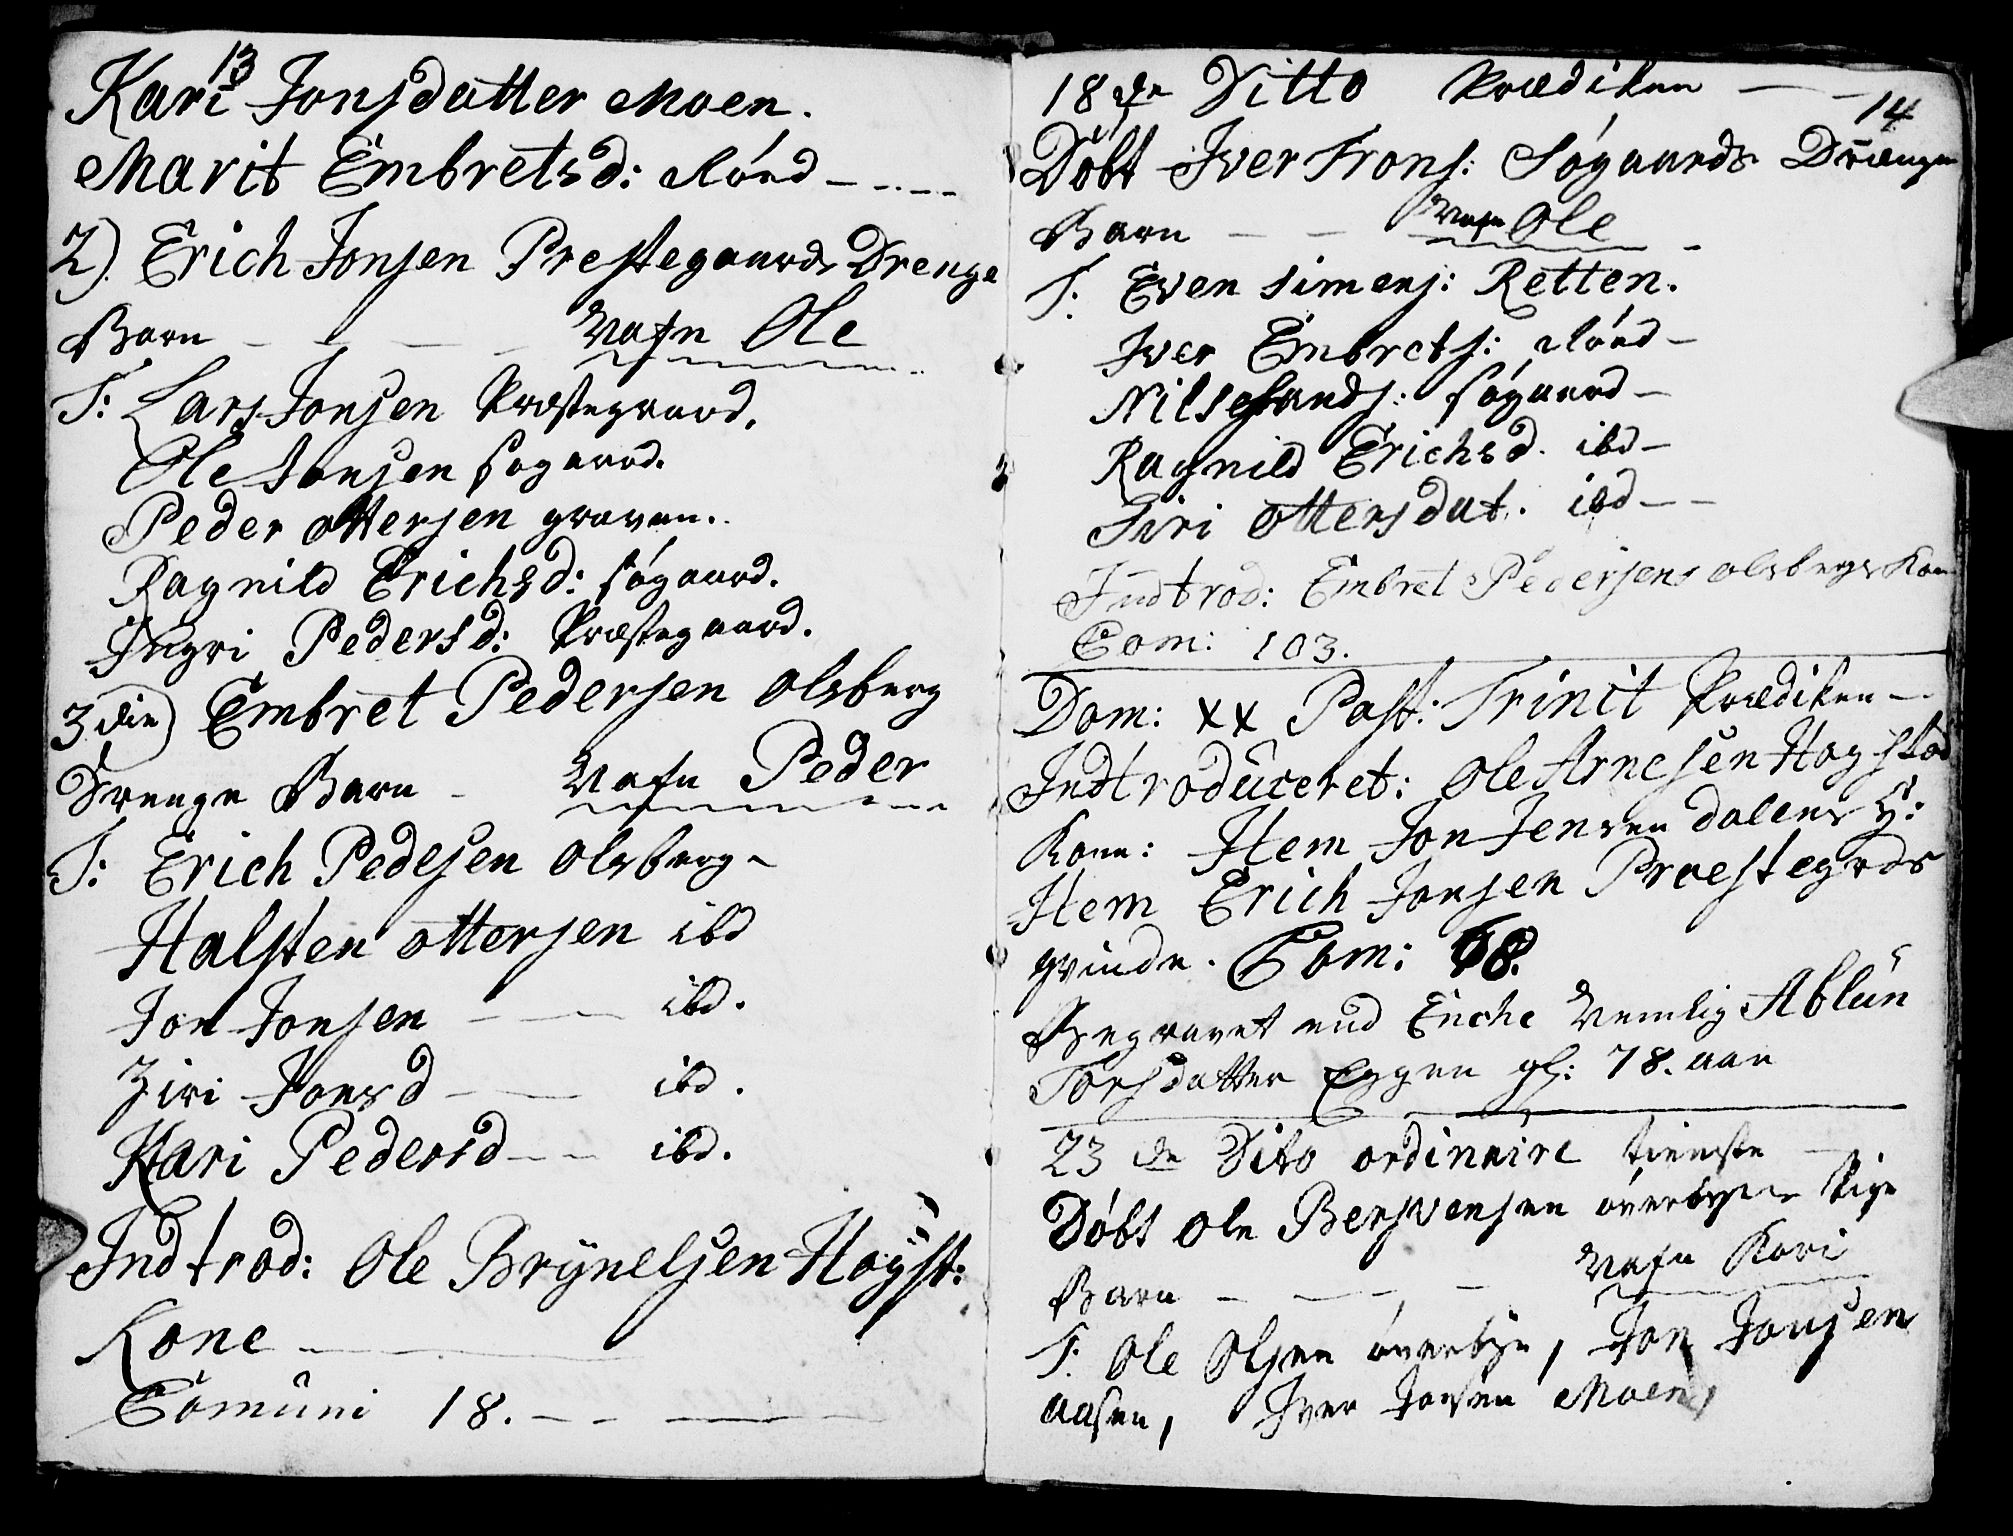 13
Kari Jonsdatter Moen.
Marit Embretsd: Núnd
2). Erich Jonsen Prestegaards Drenge
Barn Nafn Ole
T: Lars Jonsen Præstegaard.
Ole Jonsen søgaard.
Peder ottersen graven.
Ragnild Erichsd: søgaard.
Ingri Pedersd: Præstegaard.
3die) Embret Pedersen olsberg
Drenge Barn Nafn Peder
T: Erich Pedesen olsberg
Halsten ottersen ibd
Jon Jonsen ibd.
Ziri Jonsd ibd.
Kari Pedersd ibd.
Indtrod: Ole Brÿnelsen Haÿst:
Kone
Comuni 18.
14
18de Ditto Prædiken
Døbt Iver Trons: Søgaards Drænge
Barn Nafn Ole
T. Even Simens: Retten.
Iver Embrets: Núnd
Nils s: søgaard
Ragnild Erichsd. ibd
Siri ottersdat. ibd
Indtrod: Embret Pedersens olsbergs Kone
Com: 103.
Dom: XX Post: Trinit Prædiken
Indtroduceret: Ole Arnesen Hagstad
Kone: Item Jon Jensen dalens H:
Item Erich Jonsen Præstegrds
qvinde. Com: 68.
Begravet end Enche Nemlig Ablun
Torsdatter Eggen gl: 78. aar
23de Dito ordinaire tieneste
Døbt ole Bersvensen øverbye Pige
Barn Nafn Kari
T. Ole Olsen øverbye, Jon Jonsen
aasen, Iver Jonsen Moen,